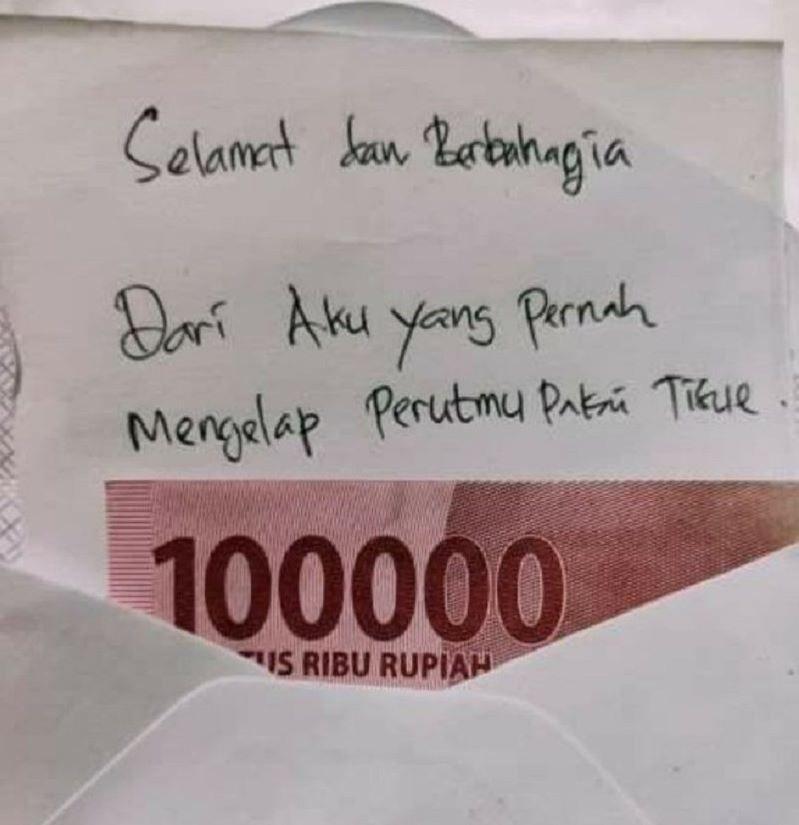 Selamat dan Berbahagia
Dari Aku yang Pernah
Mengelap Perutmu Pakai Tisue.
100000
TUS RIBU RUPIAH